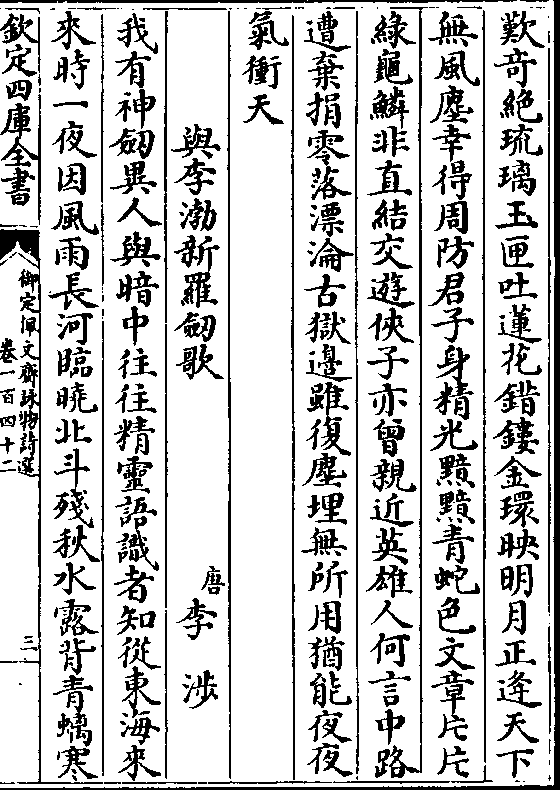 歎竒絶琉璃玉匣吐蓮花錯鏤金環映明月正逢天下
無風塵幸得周防君子身精光黯黯青蛇色文章片片
綠龜鱗非直結交遊俠子亦曾親近英雄人何言中路
遭棄捐零落漂淪古獄邊雖復塵埋無所用猶能夜夜
氣衝天
與李渤新羅劒歌
唐李涉
我有神劒異人與暗中往往精靈語識者知從東海來
來時一夜因風雨長河臨曉北斗殘秋水露背青螭寒
欽定四庫全書
御定佩文齋詠物詩選
卷一百四十二
三